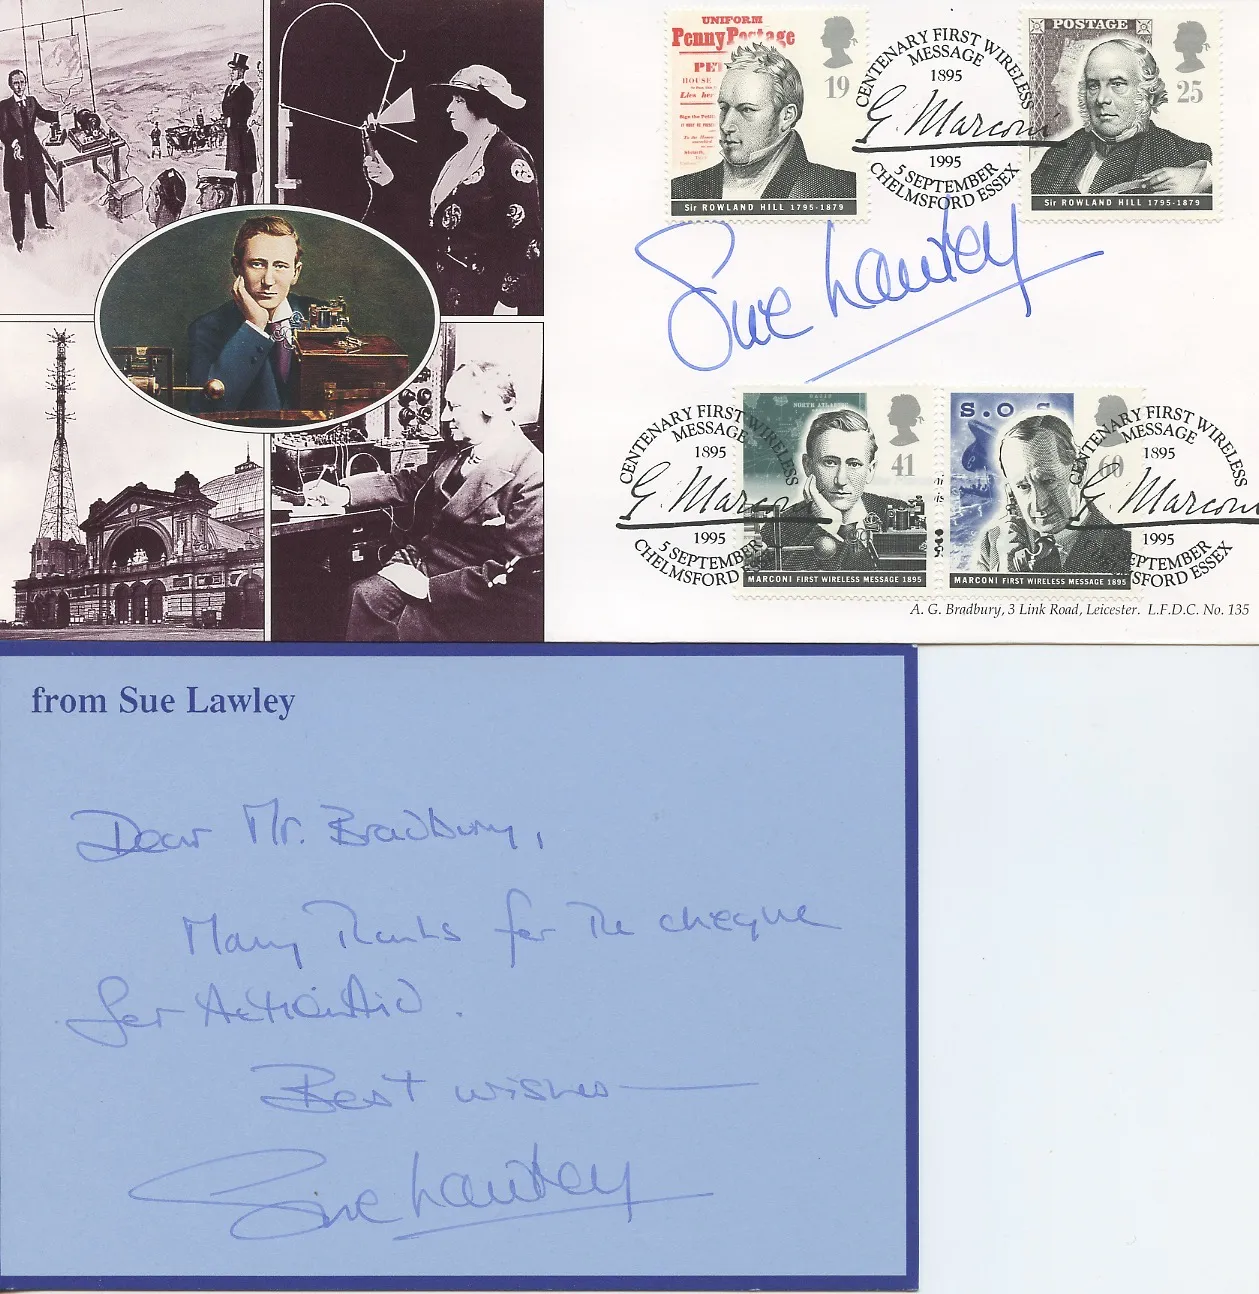 UNIFORM
Penny Postage
PE
HOUSE
Lies her
Sign the Petiti
19
Sir ROWLAND HILL 1795-1879
CENTENARY FIRST WIRELESS
MESSAGE
1895
G. Marconi
1995
5 SEPTEMBER
CHELMSFORD ESSEX
POSTAGE
25
Sir ROWLAND HILL 1795-1879
Sue Lawley
CENTENARY FIRST WIRELESS
MESSAGE
1895
G. Marconi
1995
5 SEPTEMBER
CHELMSFORD
NORTH ATLANTIC
41
MARCONI FIRST WIRELESS MESSAGE 1895
S.O.S
60
MARCONI FIRST WIRELESS MESSAGE 1895
CENTENARY FIRST WIRELESS
MESSAGE
1895
G. Marconi
1995
SEPTEMBER
CHELMSFORD ESSEX
A. G. Bradbury, 3 Link Road, Leicester. L.F.D.C. No. 135
from Sue Lawley
Dear Mr. Bradbury,
Many Thanks for the cheque
for ActionAid.
Best wishes
Sue Lawley